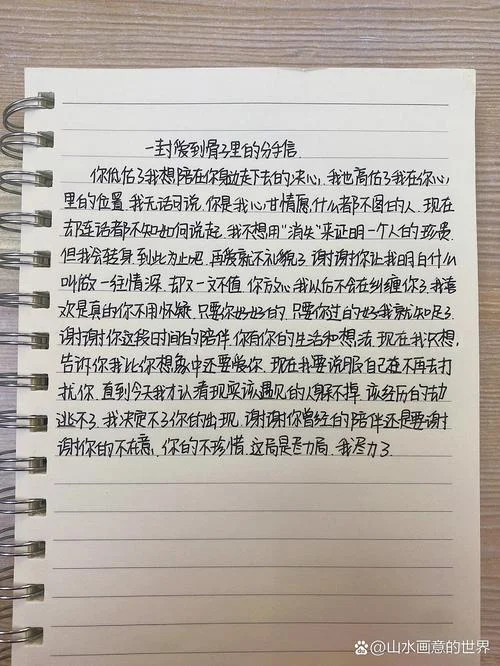 一封爱到骨子里的分手信.
你低估了我想陪在你身边走下去的决心,我也高估了我在你心
里的位置.我无话可说.你是我心甘情愿,什么都不图的人.现在
却连话都不知如何说起,我不想用“消失”来证明一个人的珍贵.
但我会转身.到此为止吧,再爱就不礼貌了.谢谢你让我明白什么
叫做一往情深.却又一文不值.你放心我以后不会在纠缠你了.我喜
欢是真的你不用怀疑.只要你好好的,只要你过的好我就知足了.
谢谢你这段时间的陪伴.你有你的生活和想法.现在我只想.
告诉你我比你想象中还要爱你.现在我要说服自己在不再去打
扰你.直到今天我才认看现实该遇见的人躲不掉.该经历的劫
逃不了.我决定不了你的出现.谢谢你曾经的陪伴还是要谢
谢你的不在意.你的不珍惜.这局是尽力局.我尽力了.
@山水画意的世界